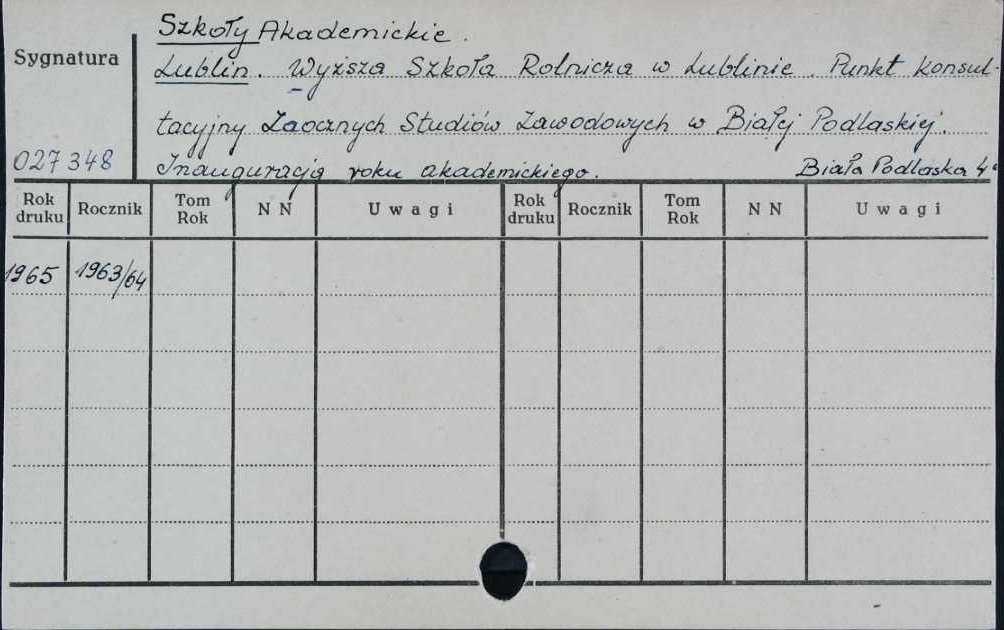 Szkoły Akademickie.
Sygnatura
Lublin. Wyższa Szkoła Rolnicza w Lublinie. Punkt konsul-
tacyjny Zaocznych Studiów Zawodowych w Białej Podlaskiej.
027348
Inauguracja roku akademickiego. Biała Podlaska 4°
Rok druku Rocznik Tom Rok N N Uwagi Rok druku Rocznik Tom Rok N N Uwagi
1965 1963/64